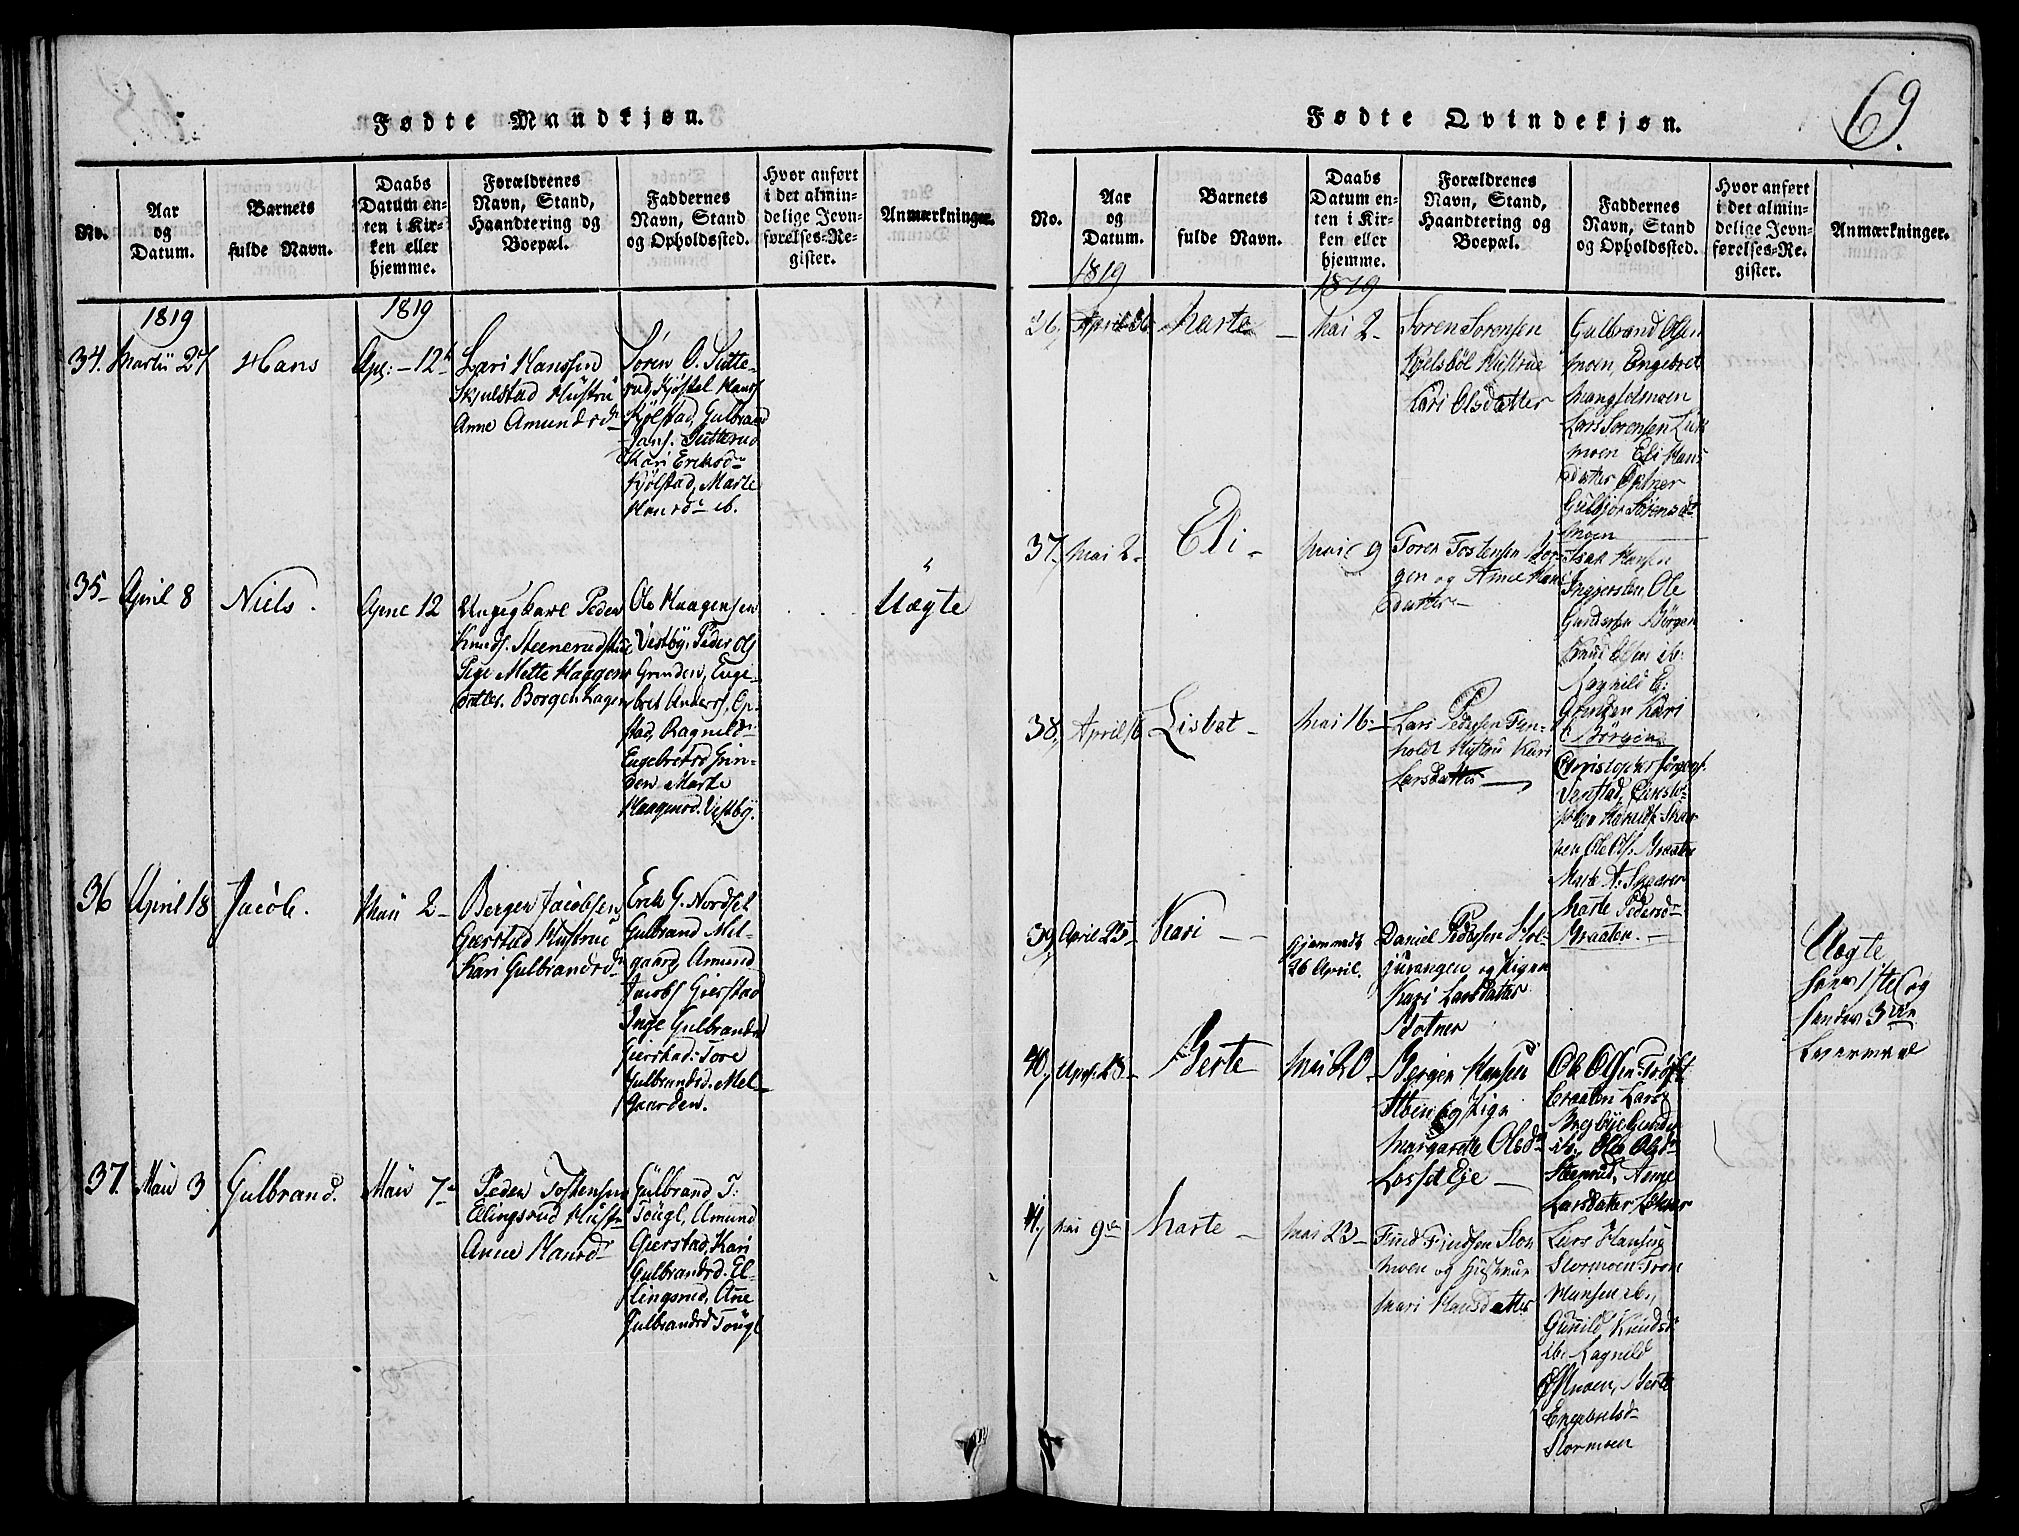 Fødte Mandkjøn.
No.
Aar
og
Datum.
Barnets
fulde Navn.
Daabs
Datum en-
ten i Kir-
ken eller
hjemme.
Forældrenes
Navn, Stand,
Haandtering og
Boepæl.
Faddernes
Navn, Stand
og Opholdssted.
Hvor anført
i det almin-
delige Jevn-
førelses-Re-
gister.
Anmærkninger.
1819
1819
34. Martii 27
Hans
Apr: - 12
Lars Hanssen
Skjulstad Hustru
Anne Amundsd
Sören O. Sutte-
rud, Kjöstel Hans
Kjölstad, Gulbrand
Hans. Sutterud
Kari Eriksd
Kjölstad, Marte
Hansd ib.
35 April 8
Niels.
Aprie 12
Ungegkarl Peder
Knuds. Steenerud
Pige Mette Haagens
datter. Borgenhagen
Ole Haagensen
Vestby, Peder Ols
Grinden, Enge-
bret Anders, Op-
stad, Ragnild
Engebretsd Grin-
den Marte
Haagensd. Vestby.
Uægte
36 April 18
Jacob.
Maii 2
Bergen Jacobsen
Gierstad Hustrue
Kari Gulbrandsd
Erik G. Nordset
Gulbrand Mel-
gaard, Amund
Jacobs Gierstad
Inge Gulbrandsd
Gierstad. Tore
Gulbrandsd. Mel-
gaarden.
37. Maii 3
Gulbrand.
Maii 7
Peder Tostensen
Elingsrud Hust
Anne Hansd
Gulbrand T:
Tougl, Amund
Gierstad, Kari
Gulbrandsd. El-
lingsrud, Ane
Gulbrandsd Tougl
69.
Fødte Qvindekjøn.
No.
Aar
og
Datum.
Barnets
fulde Navn.
Daabs
Datum en-
ten i Kir-
ken eller
hjemme.
Forældrenes
Navn, Stand,
Haandtering og
Boepæl.
Faddernes
Navn, Stand
og Opholdssted.
Hvor anført
i det almin-
delige Jevn-
førelses-Re-
gister.
Anmærkninger.
1819
1819
36, April
Marte
Mai 2
Soren Sorensen
Kjelsböl Hustrue
Kari Olsdatter
Gulbrand Olsen
moen, Engebret
Mangselmoen
Lars Sorensen
moen Eli Hans
datter Opkner
Sörensd
moen
37. Mai 2
Eli
Mai 9
Toren Tostensen Bör-
gen og Anne Hans
datter
Isak Hansen
Ingjersten Ole
Gundersen Börgen
ib:
Ragnild E:
Grinden Kari
Börgen
38, April 16
Lisbet
Mai 16
Lars Pedersen Fen-
holdt Hustru Kari
Larsdatter
Christopher Jörgens.
Venstad, Christo-
Ole Ols. Braaten
Marte A: Skaaren
Marte Pedersd
Braaten.
39, April 25
Kari
hjemmedt
26 April.
Daniel Pedersen Hol-
og Pigen
Kari Larsdatter
Botner
Uægte
hans 1ste og
hendes 3die
Leiermaal
40,
Berte
Mai 20
Bergen Hansen
og Pige
Margarette Olsd
Losset Eje
Ole Olsen Tröft
Braaten Lars
ib. Olea Olsd
Steenrud, Anne
Larsdatter
41, Mai 9
Marte
Mai 23
Find Findsen Stor
moen og Hustrue
Mari Hansdatter
Lars Hansen
Stormoen Tron
Hansen ib,
Gunild Knudsd
ib. Ragnild
Östmoen, Berte
Engebretsd
Stormoen